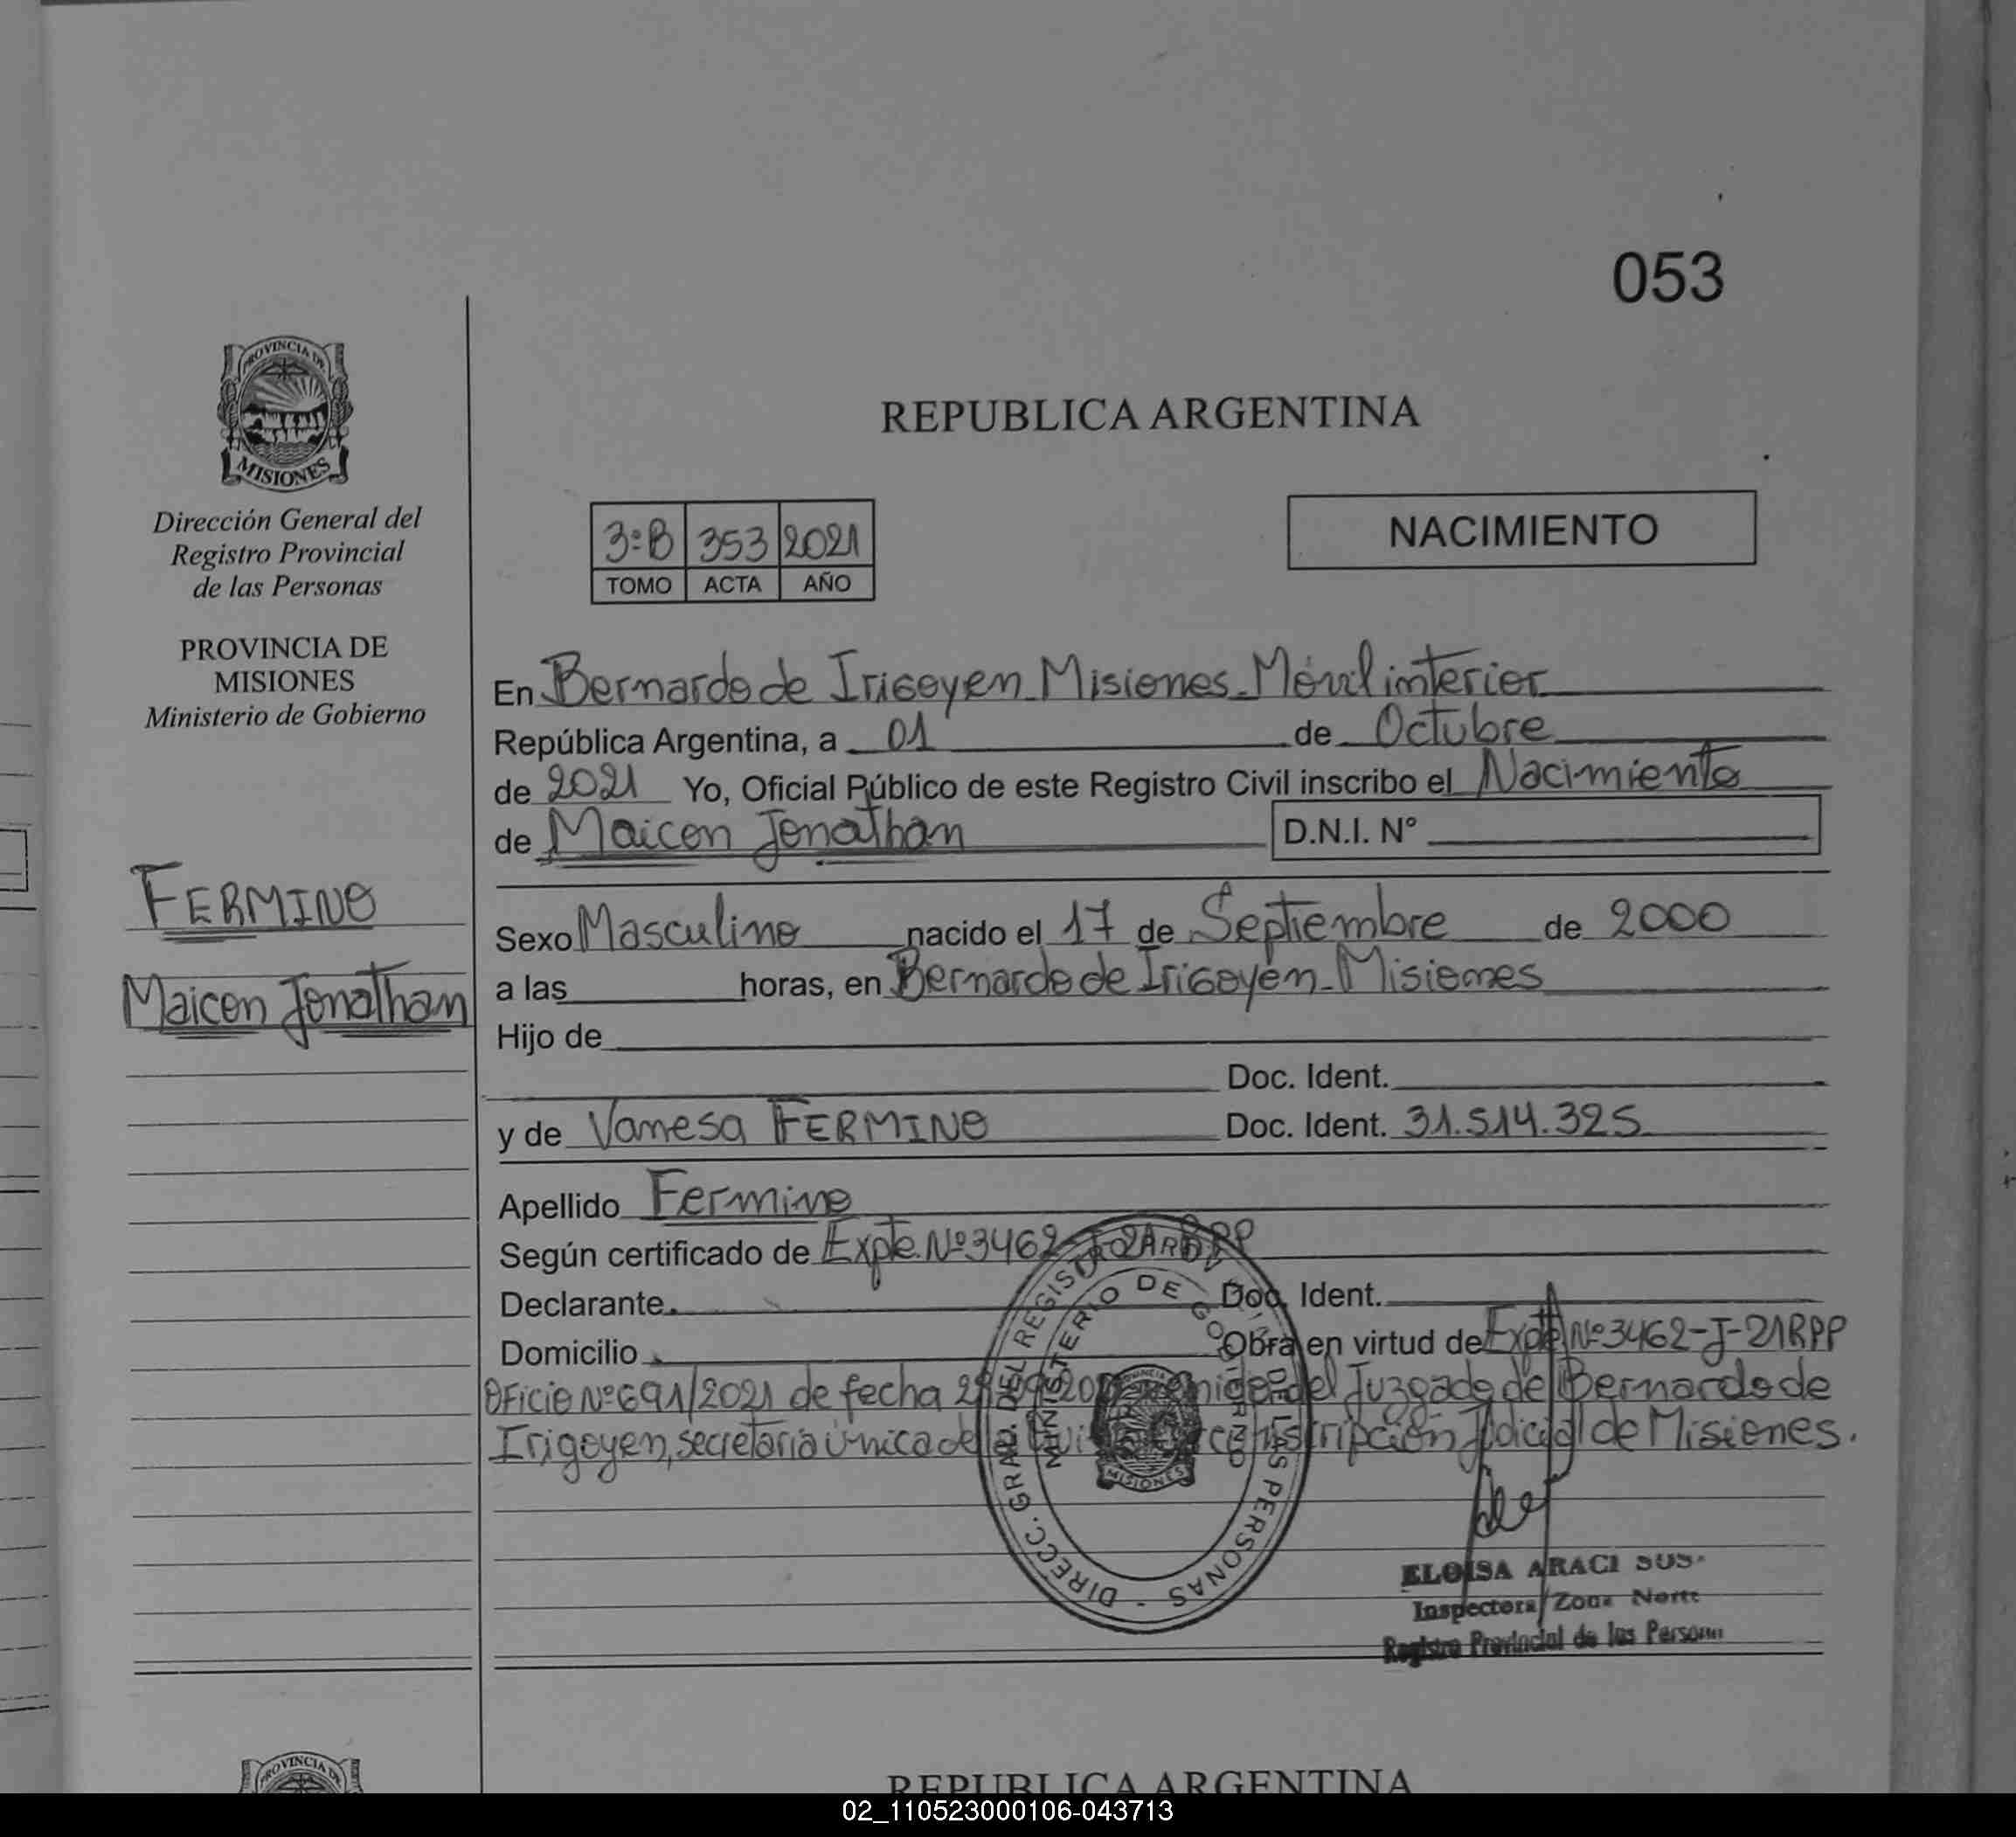 053
PROVINCIA DE
MISIONES
Dirección General del
Registro Provincial
de las Personas
PROVINCIA DE
MISIONES
Ministerio de Gobierno
FERMINO
Maicon Jonathan
REPUBLICA ARGENTINA
3ºB 353 2021
TOMO ACTA AÑO
NACIMIENTO
En Bernardo de Irigoyen - Misiones - Móvil interior
República Argentina, a 01 de Octubre
de 2021 Yo, Oficial Público de este Registro Civil inscribo el Nacimiento
de Maicon Jonathan D.N.I. N°
Sexo Masculino nacido el 17 de Septiembre de 2000
a las horas, en Bernardo de Irigoyen - Misiones
Hijo de
Doc. Ident.
y de Vanesa FERMINO Doc. Ident. 31.514.325
Apellido Fermino
Según certificado de Expte. Nº 3462-J-21 RPP
Declarante Doc. Ident.
Domicilio Obra en virtud de Expte Nº 3462-J-21RPP
Oficio Nº 691/2021 de fecha del Juzgado de Bernardo de
Irigoyen, secretaria única de Judicial de Misiones.
DIRECC. GRAL. DEL REGISTRO DE LAS PERSONAS -
MINISTERIO DE GOBIERNO
MISIONES
ELOISA ARACI
Inspectora Zona Norte
Registro Provincial de las Personas
PROVINCIA
REPUBLICA ARGENTINA
02_110523000106-043713